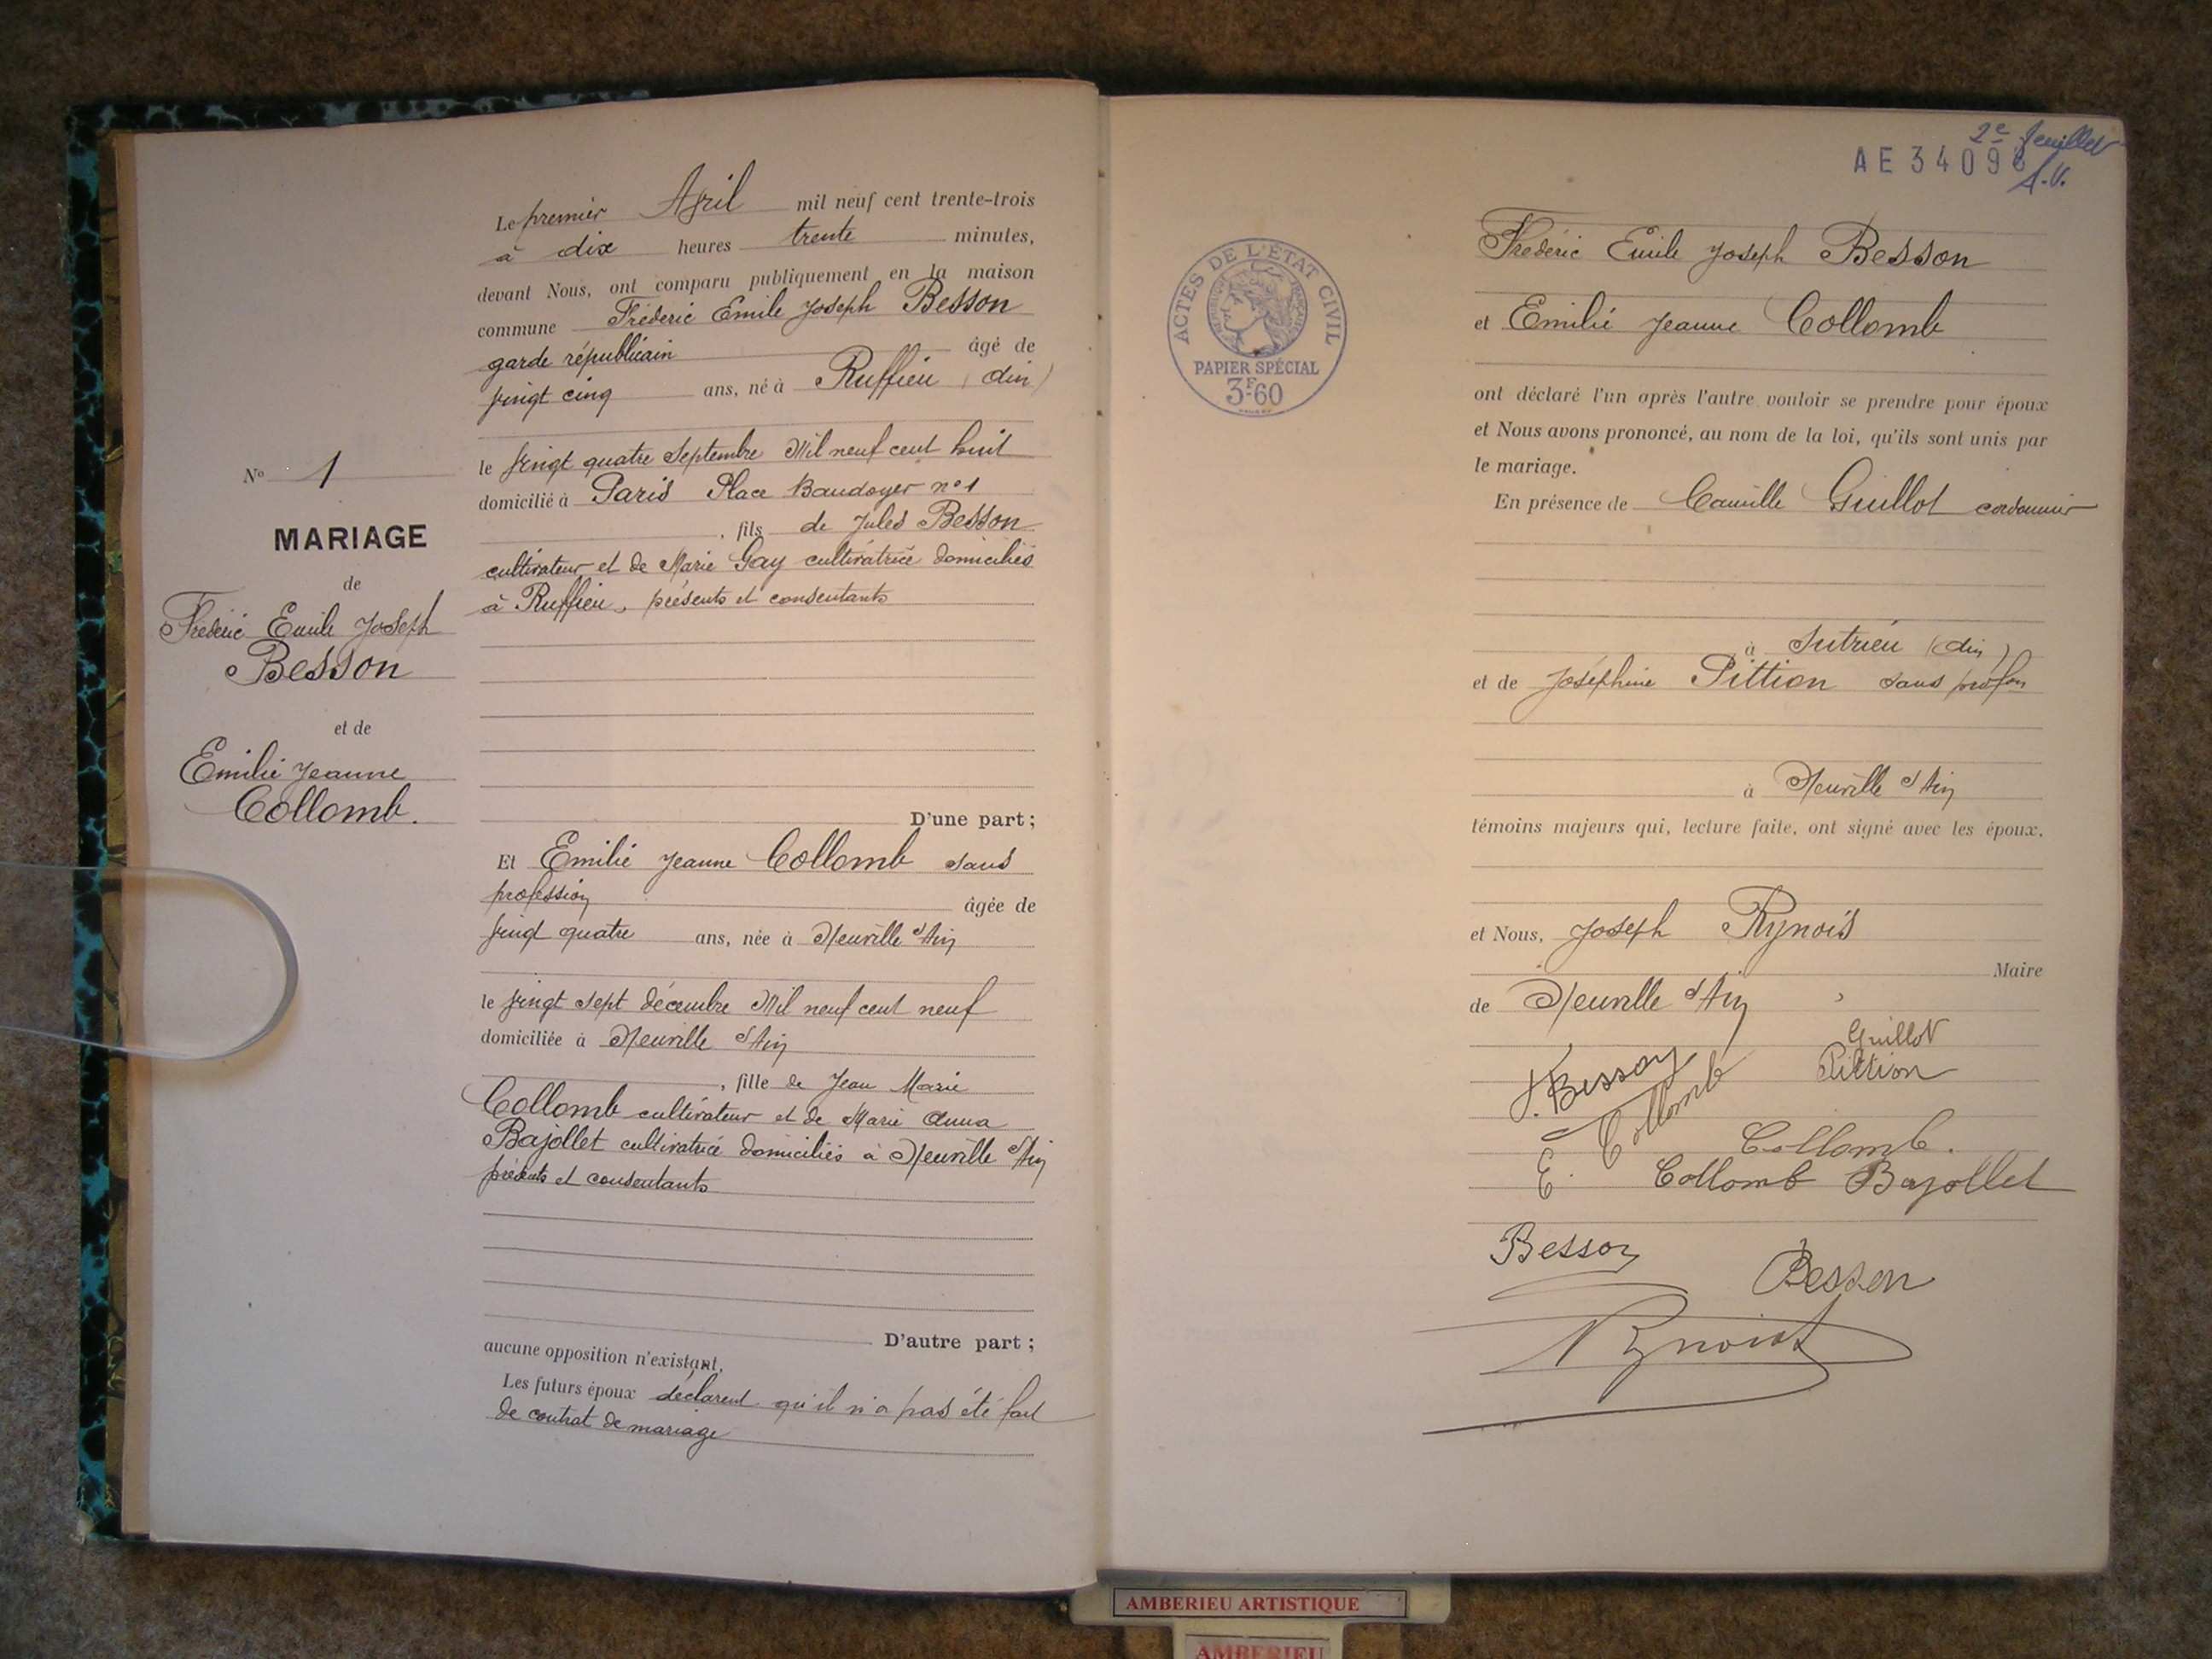 Le premier Avril mil neuf cent trente-trois
à dix heures trente minutes,
devant Nous, ont comparu publiquement en la maison
commune Fréderic Emile Joseph Besson
garde républicain âgé de
vingt cinq ans, né à Ruffieu (Ain)
le vingt quatre Septembre Mil neuf cent huit
domicilié à Paris Place Baudoyer n° 1
, fils de Jules Besson
cultivateur et de Marie Gay cultivatrice domiciliés
à Ruffieu, présents et consentants
D'une part;
N° 1
MARIAGE
de
Fréderic Emile Joseph
Besson
et de
Emilie Jeanne
Collomb.
Et Emilie Jeanne Collomb sans
profession âgée de
vingt quatre ans, née à Neuville s/Ain
le vingt sept décembre Mil neuf cent neuf
domiciliée à Neuville s/Ain
, fille de Jean Marie
Collomb cultivateur et de Marie Anna
Bajollet cultivatrice domiciliés à Neuville s/Ain
présents et consentants
D'autre part;
aucune opposition n'existant.
Les futurs époux déclarent qu'il n'a pas été fait
de contrat de mariage
2e feuillet
AE 3409
A.V.
ACTES DE L'ÉTAT CIVIL
PAPIER SPÉCIAL
3F60
Fréderic Emile Joseph Besson
et Emilie Jeanne Collomb
ont déclaré l'un après l'autre vouloir se prendre pour époux
et Nous avons prononcé, au nom de la loi, qu'ils sont unis par
le mariage.
En présence de Camille Guillot cordonnier
à Sutrieu (Ain)
et de Joséphine Pittion sans profon
à Neuville s/Ain
témoins majeurs qui, lecture faite, ont signé avec les époux.
et Nous, Joseph Rynois
Maire
de Neuville s/Ain
Guillot
F. Besson Pittion
E. Collomb
Collomb.
Collomb Bajollet
Besson
Besson
AMBERIEU ARTISTIQUE
AMBERIEU